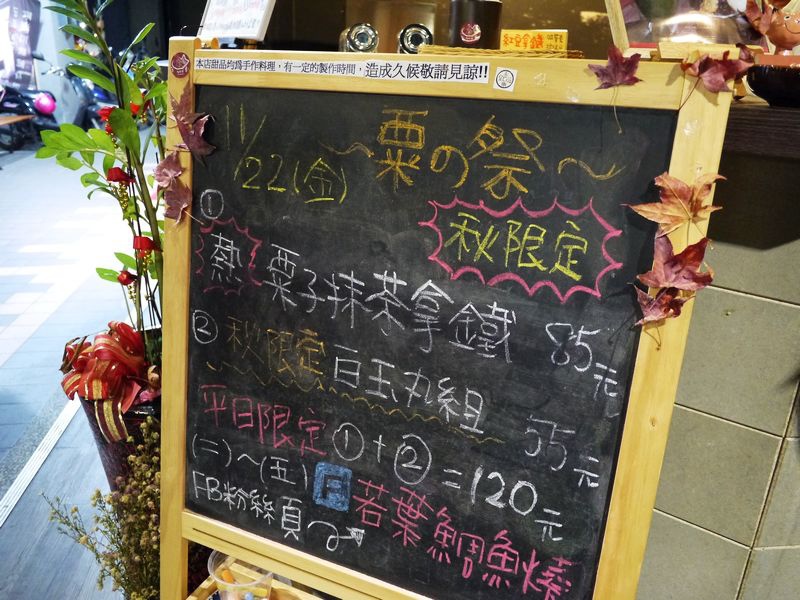 紅豆拿鐵
本店甜品均為手作料理，有一定的製作時間，造成久候敬請見諒!!
11/22(金) ～栗の祭～
秋限定
①
熱 栗子抹茶拿鐵 85元
② 秋限定 白玉丸組 55元
平日限定 ①+②=120元
(二)~(五)
FB粉絲頁 若葉鯛魚燒